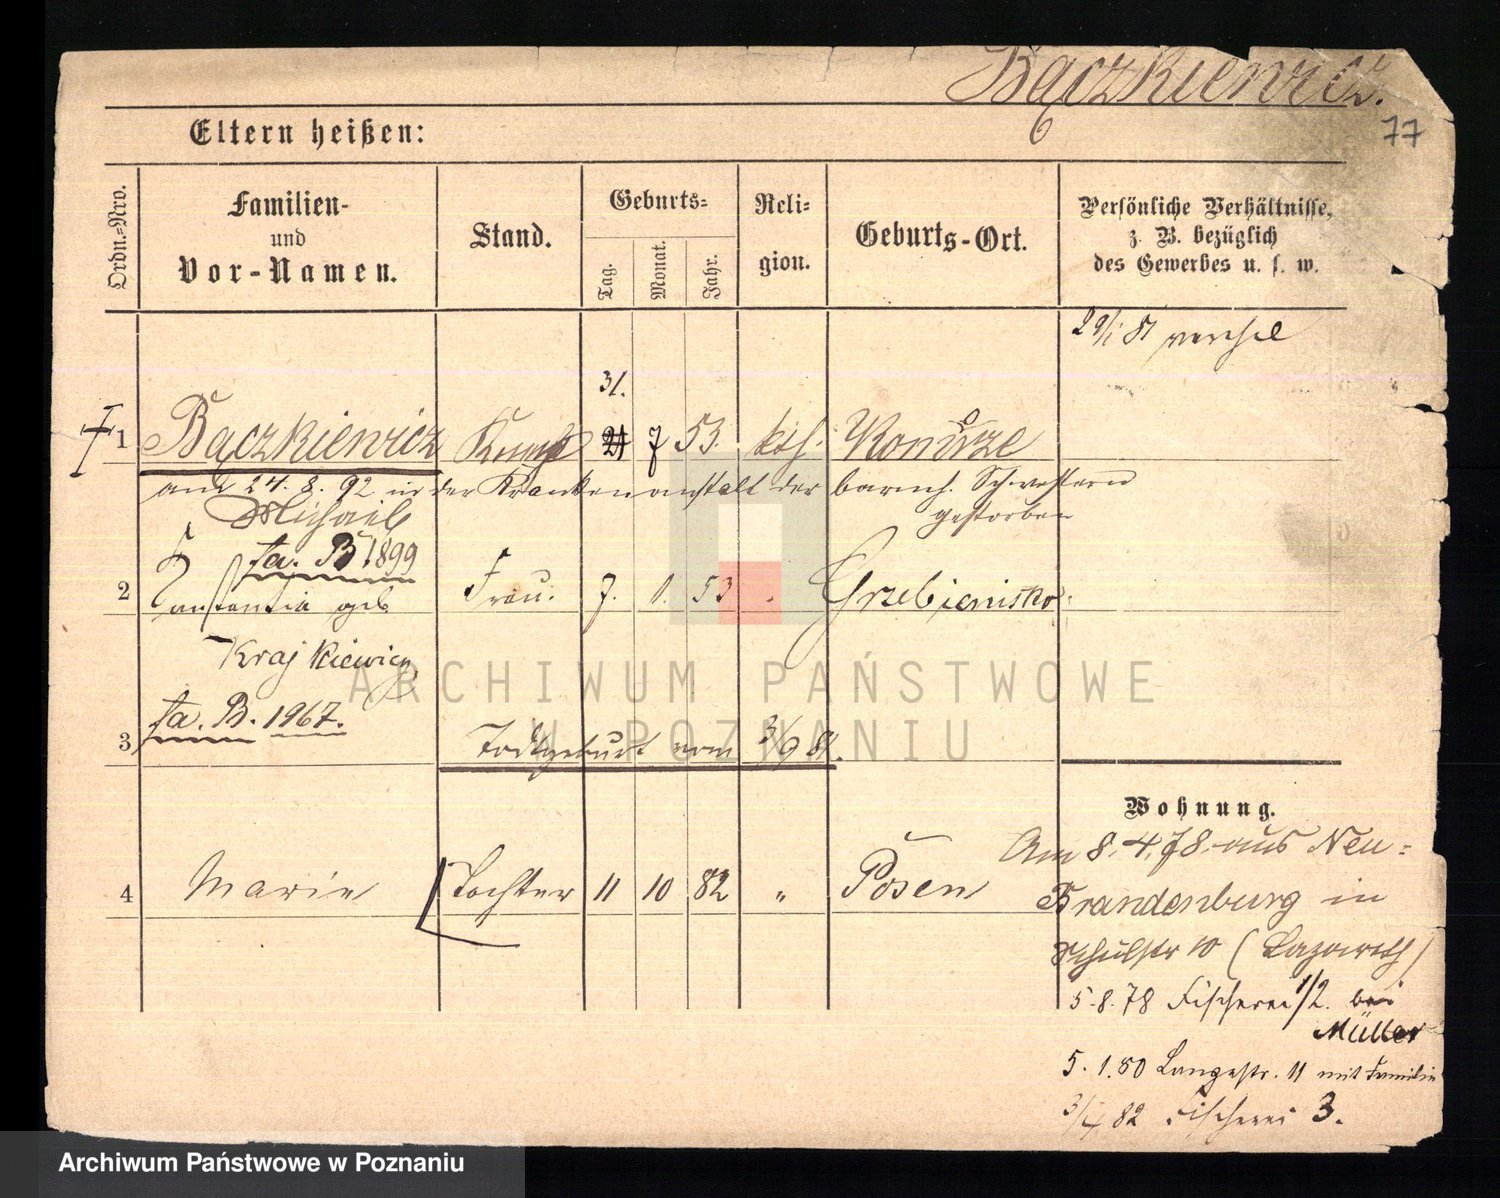 Bączkiewicz.
77
Eltern heißen:
Ordn.=Nro.
Familien-
und
Vor-Namen.
Stand.
Geburts=
Tag.
Monat.
Jahr.
Reli=
gion.
Geburts-Ort.
Persönliche Verhältnisse,
z. B. bezüglich
des Gewerbes u. s. w.
29/1 81
31.
1 Bączkiewicz 21 7 53. kth.
am 24. 8. 92 in der Krankenanstalt der barmh. Schwestern
gestorben
Michael
fa. B 1899
2 Constantia geb Frau. 7. 1. 53 Grzebienisko.
Krajkiewicz
fa. B. 1967.
3 Todtgeburt vom 3/9 81.
Wohnung.
Am 8. 4. 78. aus Neu=
4 Marie Tochter 11 10 82 " Posen
Brandenburg in
Schulstr 10 (Lazareth)
5. 8. 78 Fischerei 1/2. bei
Müller
5. 1. 80 Langestr. 11 mit Familie
3/4 82 Fischerei 3.
ARCHIWUM PAŃSTWOWE
W POZNANIU
Archiwum Państwowe w Poznaniu